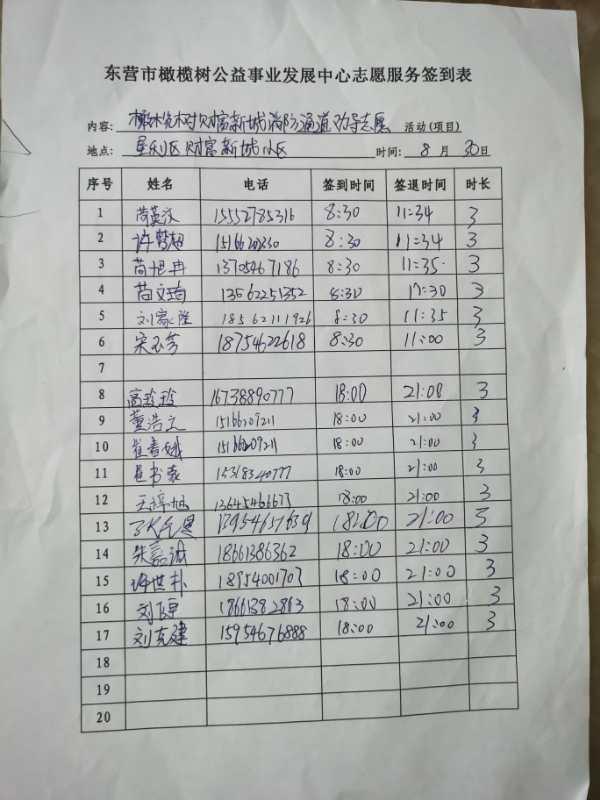 东营市橄榄树公益事业发展中心志愿服务签到表
内容: 橄榄树财富新城消防通道劝导志愿 活动(项目)
地点: 垦利区财富新城小区 时间: 8 月 30 日
序号 姓名 电话 签到时间 签退时间 时长
1 15552785316 8:30 11:34 3
2 许梦想 8:30 11:34 3
3 苘旭冉 13705467186 8:30 11:35 3
4 苘文珣 13562251352 8:30 3
5 刘家隆 18562111926 8:30 11:35 3
6 宋玉芳 18754622618 8:30 11:00 3
7
8 高玲玲 16738890777 18:00 21:00 3
9 董浩文 15166209211 18:00 21:00 3
10 崔春娥 15166209211 18:00 21:00 3
11 15318340777 18:00 21:00 3
12 王梓旭 13645466673 18:00 21:00 3
13 18:00 21:00 3
14 朱嘉诚 18661386362 18:00 21:00 3
15 许世朴 18954001703 18:00 21:00 3
16 18661382863 18:00 21:00 3
17 刘克建 15954676888 18:00 21:00 3
18
19
20